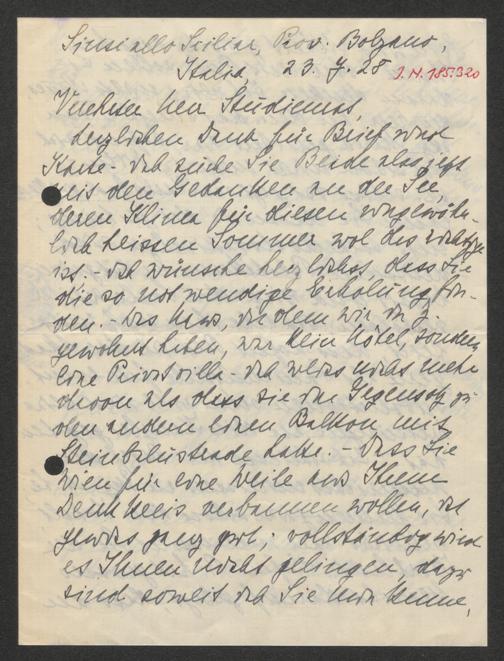 Siusi allo Sciliar, Prov. Bolzano,
Italia, 23. 7. 28
I.N. 185.320
Verehrter Herr Studienrat,
herzlichen Dank für Brief und
Karte - Ich suche Sie Beide also jetzt
mit den Gedanken an der See,
deren Klima für diesen ungewöhn-
lich heissen Sommer wol das richtige
ist. - Ich wünsche herzlichst, dass Sie
die so notwendige Erholung fin-
den. - Das Haus, in dem wir in J.
gewohnt haben, war kein Hôtel, sondern
eine Privatvilla - Ich weiss nichts mehr
davon als dass sie im Gegensatz zu
den andern einen Balkon mit
Steinbalustrade hatte. - Dass Sie
Wien für eine Weile aus Ihrem
Denkkreis verbannen wollen, ist
gewiss ganz gut; vollständig wird
es Ihnen nicht gelingen, dazu
sind soweit ich Sie nun kenne,